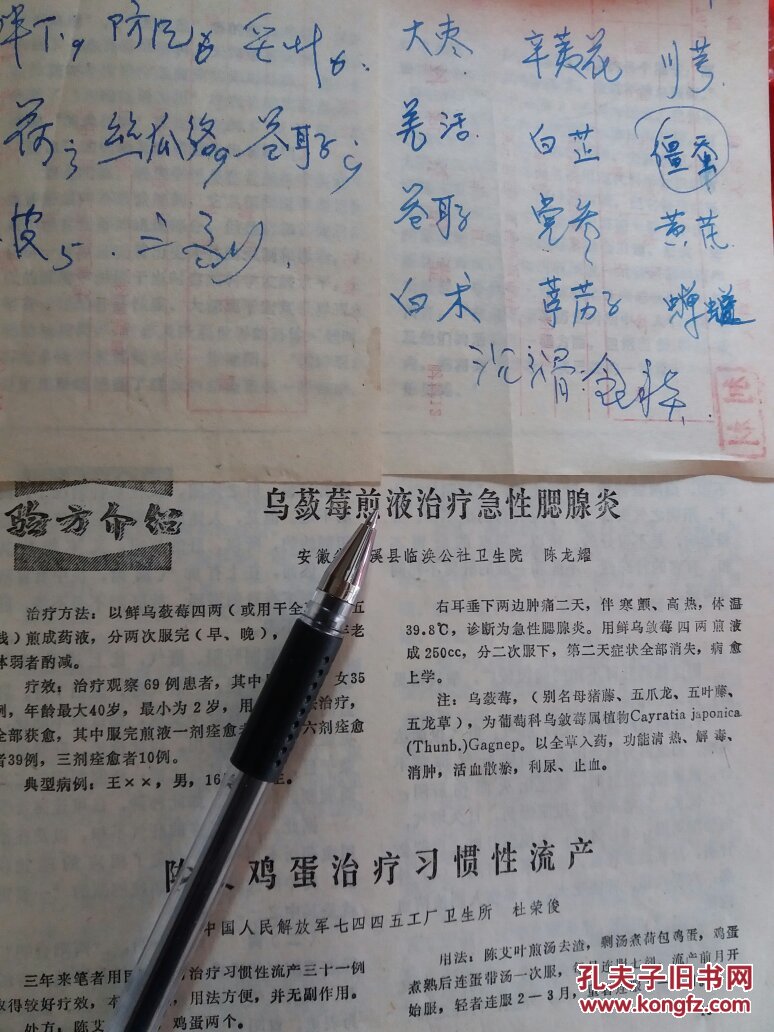 半下9 防风6 柴叶6.
荷3 丝瓜络9 苍耳子
皮5 . 三剂.
大枣 辛荑花 川芎
羌活 白芷 僵蚕
苍耳子 党参 黄芪
白术 葶苈子 蝉
验方介绍
乌蔹莓煎液治疗急性腮腺炎
安徽 溪县临涣公社卫生院 陈龙耀
治疗方法：以鲜乌蔹莓四两（或用干全 五
钱）煎成药液，分两次服完（早、晚）， 老
体弱者酌减。
疗效：治疗观察69例患者，其中 女35
例，年龄最大40岁，最小为2岁，用 治疗，
全部获愈，其中服完煎液一剂痊愈者 六剂痊愈
者39例，三剂痊愈者10例。
典型病例：王××，男，16
右耳垂下两边肿痛二天，伴寒颤、高热，体温
39.8℃，诊断为急性腮腺炎。用鲜乌蔹莓四两煎液
成250cc，分二次服下，第二天症状全部消失，病愈
上学。
注：乌蔹莓，（别名母猪藤、五爪龙、五叶藤、
五龙草），为葡萄科乌蔹莓属植物Cayratia japonica
(Thunb.)Gagnep。以全草入药，功能清热、解毒、
消肿，活血散瘀，利尿、止血。
鸡蛋治疗习惯性流产
中国人民解放军七四四五工厂卫生所 杜荣俊
三年来笔者用 治疗习惯性流产三十一例
取得较好疗效，本 用法方便，并无副作用。
处方：陈艾 鸡蛋两个。
用法：陈艾叶煎汤去渣，剩汤煮荷包鸡蛋，鸡蛋
煮熟后连蛋带汤一次服， 流产前月开
始服，轻者连服2—3月，
孔夫子旧书网
www.kongfz.com